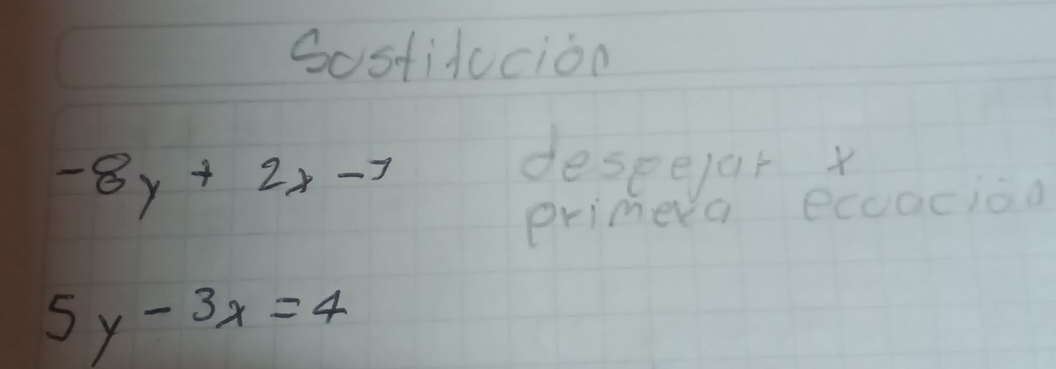 Sustitución
-8y + 2x -7
despejar x
primera ecuación
5y - 3x = 4